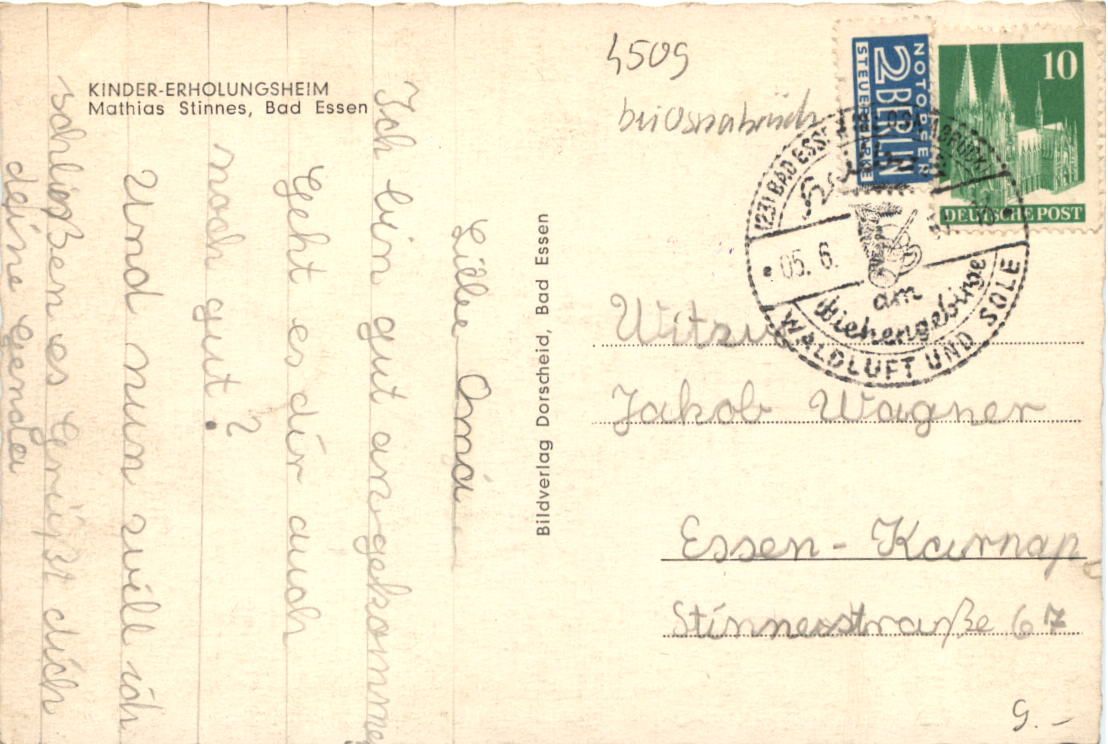 KINDER-ERHOLUNGSHEIM
Mathias Stinnes, Bad Essen
Liebe Oma
Ich bin gut angekomme
Geht es dir auch
noch gut?
Und nun will ich
schließen es grüßt dich
deine Gerda
Bildverlag Dorscheid, Bad Essen
4509
bei Osnabrück
NOTOPFER
2 BERLIN
STEUERMARKE
10
DEUTSCHE POST
(23) BAD ESSEN
05. 6.
am
Wiehengebirge
WALDLUFT UND SOLE
Witwe
Jakob Wagner
Essen-Karnap
Stinnesstraße 67
9.-